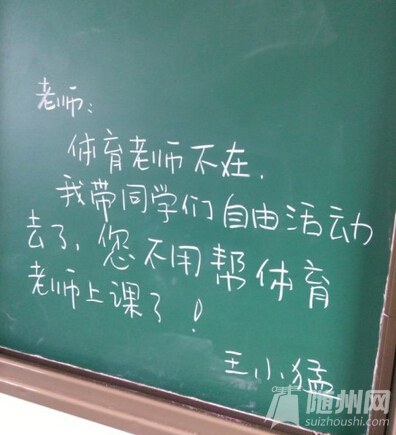 老师：
体育老师不在，
我带同学们自由活动
去了，您不用帮体育
老师上课了！
王小猛
随州网
suizhoushi.com